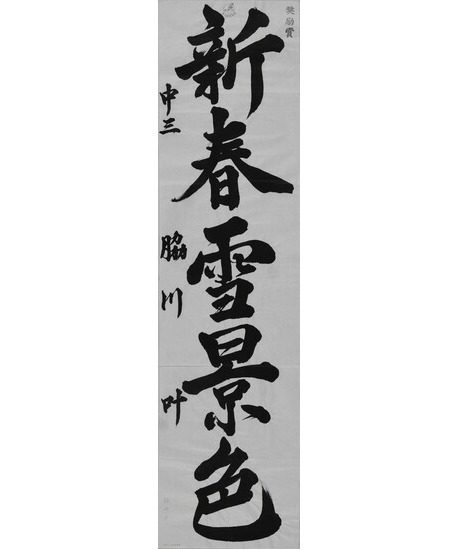 奨励賞
新春雪景色
中三 脇川 叶